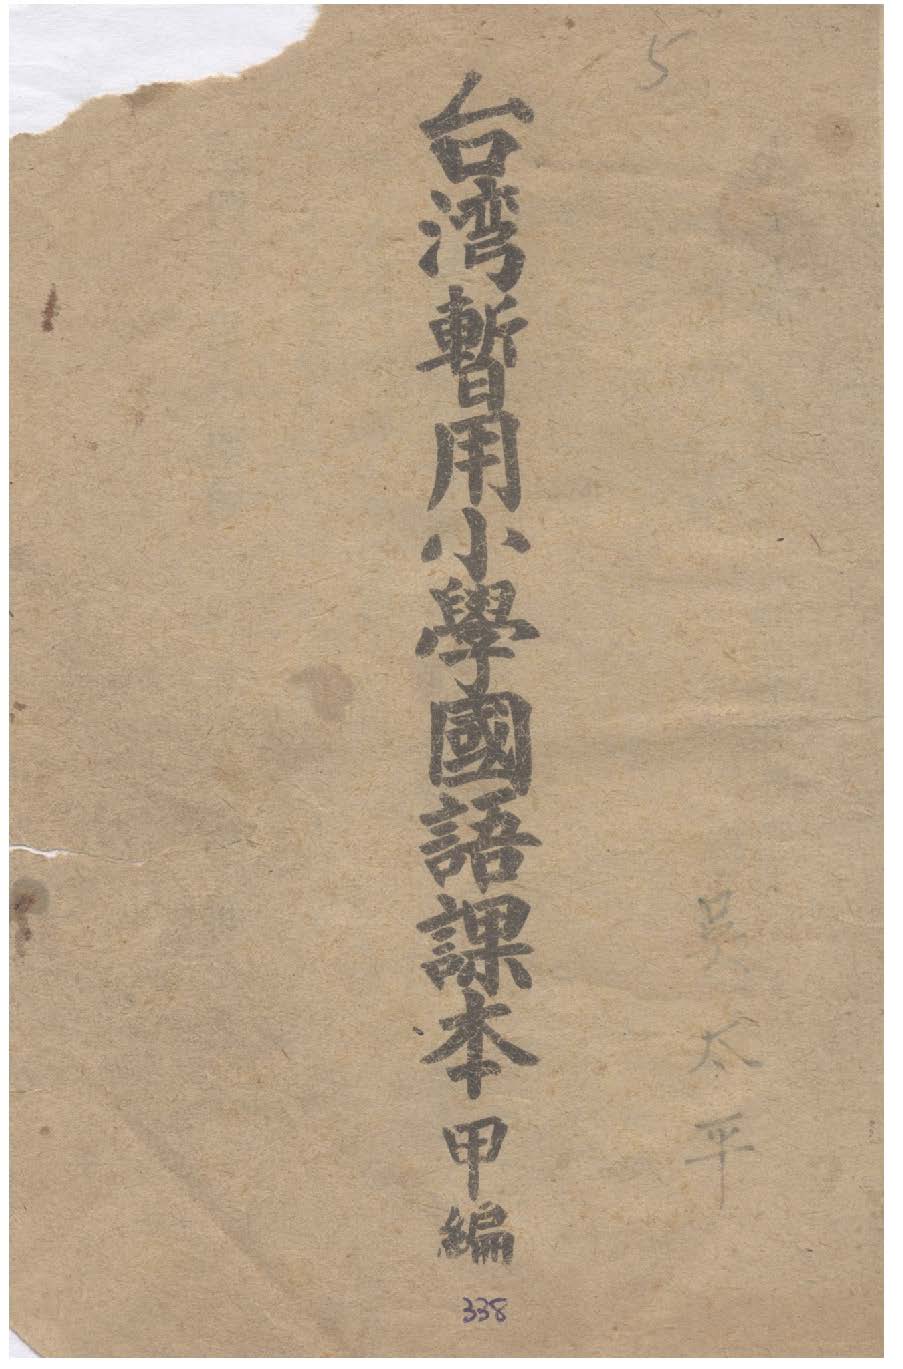 5
台湾暫用小學國語課本 甲編
吳太平
338